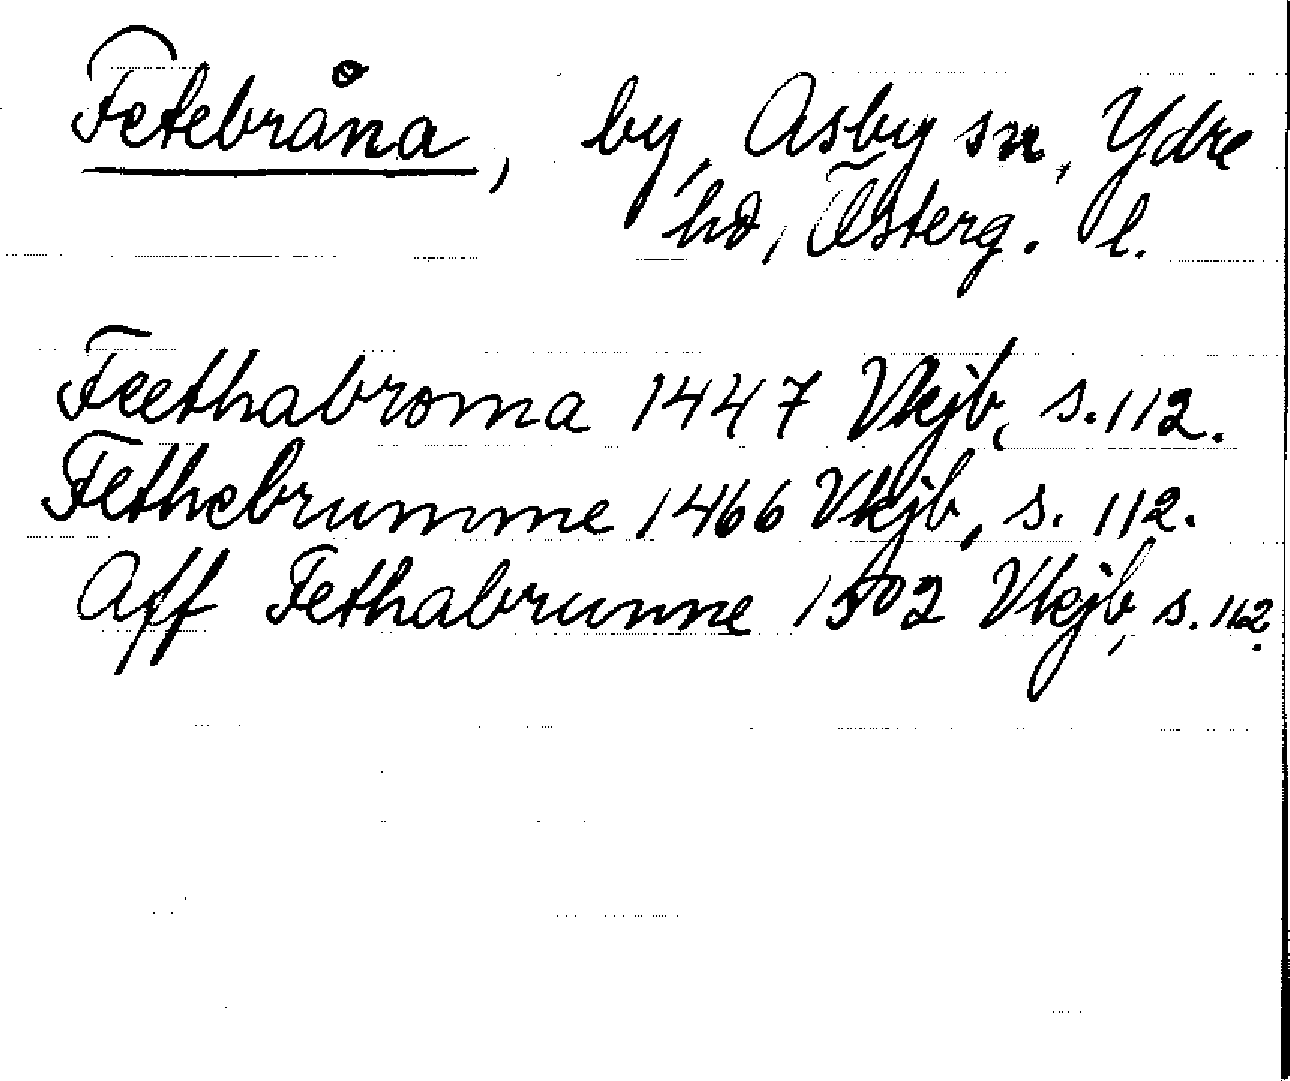 Fetebråna, by, Asby sn, Ydre
hd, Österg. l.
Feethabroma 1447 Vkjb, s. 112.
Fethebrumme 1466 Vkjb, s. 112.
Aff Fethabrunne 1502 Vkjb, s. 112.